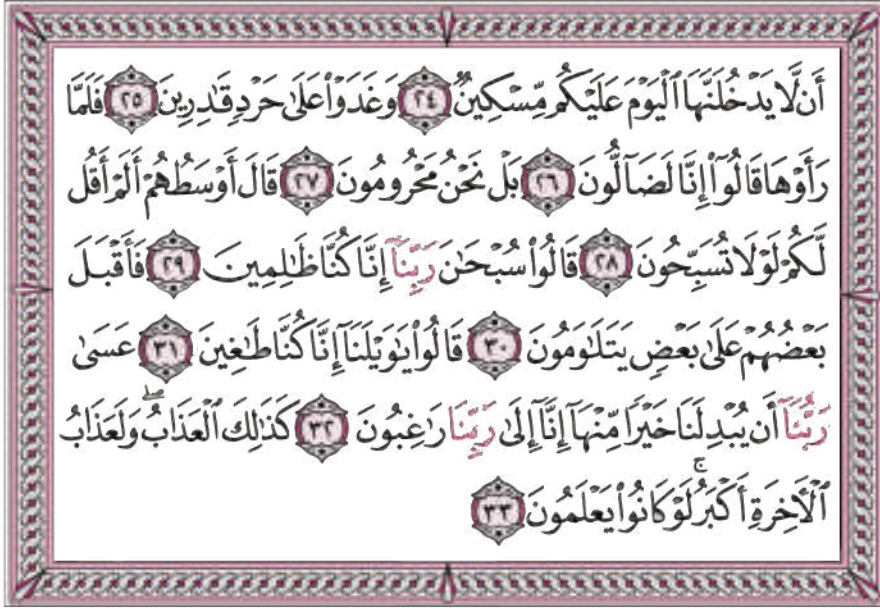 أَن لَّا يَدْخُلَنَّهَا ٱلْيَوْمَ عَلَيْكُم مِّسْكِينٌ ٢٤ وَغَدَوْا۟ عَلَىٰ حَرْدٍ قَـٰدِرِينَ ٢٥ فَلَمَّا
رَأَوْهَا قَالُوٓا۟ إِنَّا لَضَآلُّونَ ٢٦ بَلْ نَحْنُ مَحْرُومُونَ ٢٧ قَالَ أَوْسَطُهُمْ أَلَمْ أَقُل
لَّكُمْ لَوْلَا تُسَبِّحُونَ ٢٨ قَالُوا۟ سُبْحَـٰنَ رَبِّنَآ إِنَّا كُنَّا ظَـٰلِمِينَ ٢٩ فَأَقْبَلَ
بَعْضُهُمْ عَلَىٰ بَعْضٍ يَتَلَـٰوَمُونَ ٣٠ قَالُوا۟ يَـٰوَيْلَنَآ إِنَّا كُنَّا طَـٰغِينَ ٣١ عَسَىٰ
رَبُّنَآ أَن يُبْدِلَنَا خَيْرًا مِّنْهَآ إِنَّآ إِلَىٰ رَبِّنَا رَٰغِبُونَ ٣٢ كَذَٰلِكَ ٱلْعَذَابُ ۖ وَلَعَذَابُ
ٱلْـَٔاخِرَةِ أَكْبَرُ ۚ لَوْ كَانُوا۟ يَعْلَمُونَ ٣٣